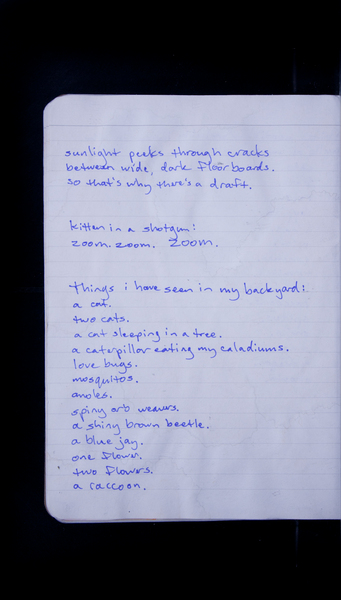 sunlight peeks through cracks
between wide, dark floorboards.
so that's why there's a draft.
kitten in a shotgun:
zoom. zoom. zoom.
things i have seen in my backyard:
a cat.
two cats.
a cat sleeping in a tree.
a caterpillar eating my caladiums.
love bugs.
mosquitos.
anoles.
spiny orb weavers.
a shiny brown beetle.
a blue jay.
one flower.
two flowers.
a raccoon.